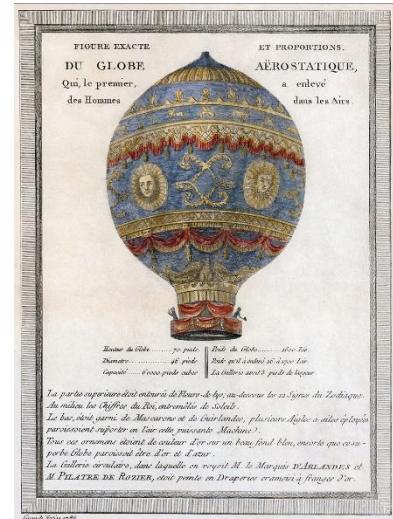 FIGURE EXACTE ET PROPORTIONS,
DU GLOBE AËROSTATIQUE,
Qui, le premier, a enlevé
des Hommes dans les Airs.
Hauteur du Globe 70 pieds Poids du Globe 1600 Liv
Diametre 46 pieds Poids qu'il a enlevé 16 à 1700 Liv
Capacité 60000 pieds cubes La Gallerie avoit 3 pieds de largeur
La partie superieure étoit entourée de Fleurs-de-lys, au-dessous les 12 Signes du Zodiaque.
Au milieu les Chiffres du Roi, entremêlés de Soleils.
Le bas, étoit garni de Mascarons et de Guirlandes, plusieurs Aigles à ailes éployées
paroissoient suporter en l'air cette puissante Machine.
Tous ces ornemens étoient de couleur d'or sur un beau fond bleu, ensorte que ce su-
perbe Globe paroissoit être d'or et d'azur.
La Gallerie circulaire, dans laquelle on voyoit M. le Marquis D'ARLANDES et
M. PILATRE DE ROZIER, étoit peinte en Draperies cramoisi à franges d'or.
1786